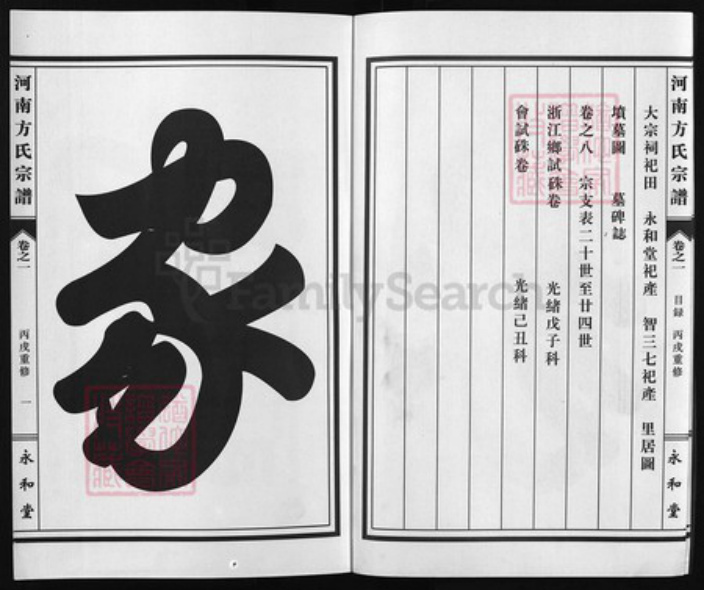 河南方氏宗譜
卷之一
目録
丙戌重修
永和堂
大宗祠祀田 永和堂祀產 智三七祀產 里居圖
墳墓圖 墓碑誌
卷之八 宗支表二十世至廿四世
浙江鄉試硃卷 光緒戊子科
會試硃卷 光緒己丑科
FamilySearch
河南方氏宗譜
卷之一
丙戌重修
一
永和堂